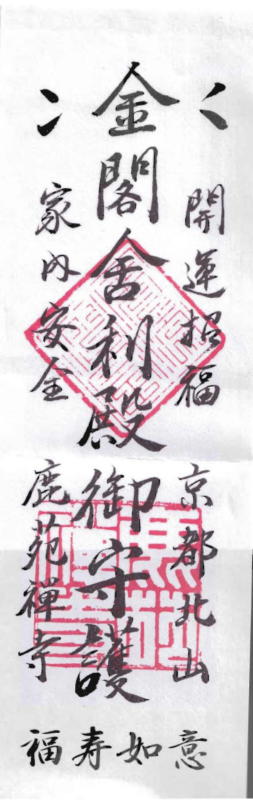 開運招福
金閣舎利殿
家内安全
京都北山
御守護
鹿苑禅寺
如意
福寿